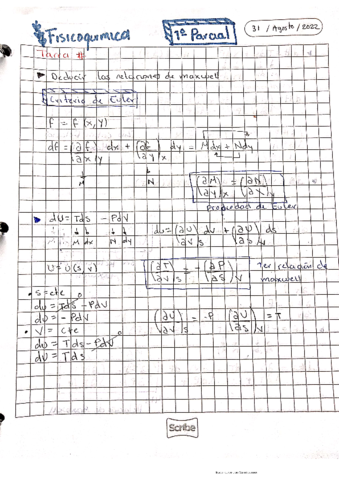 Fisicoquímica
1º Parcial
31 / Agosto / 2022
Tarea #1
▶ Deducir las relaciones de maxwell
Criterio de Euler
f = f(x,y)
df = (∂f/∂x)y dx + (∂f/∂y)x dy = Mdx + Ndy
M N
(∂M/∂y)x = (∂N/∂x)y
Propiedad de Euler
▶ dU = Tds - PdV
M dx N dy
dU = (∂U/∂V)s dV + (∂U/∂s)V ds
U = U(s,v)
(∂T/∂V)s = -(∂P/∂s)V
1er relación de
maxwell
• s = cte
dU = Tds - PdV
dU = - PdV
(∂U/∂V)s = -P (∂U/∂s)V = T
• V = cte
dU = Tds - PdV
dU = Tds
Scribe